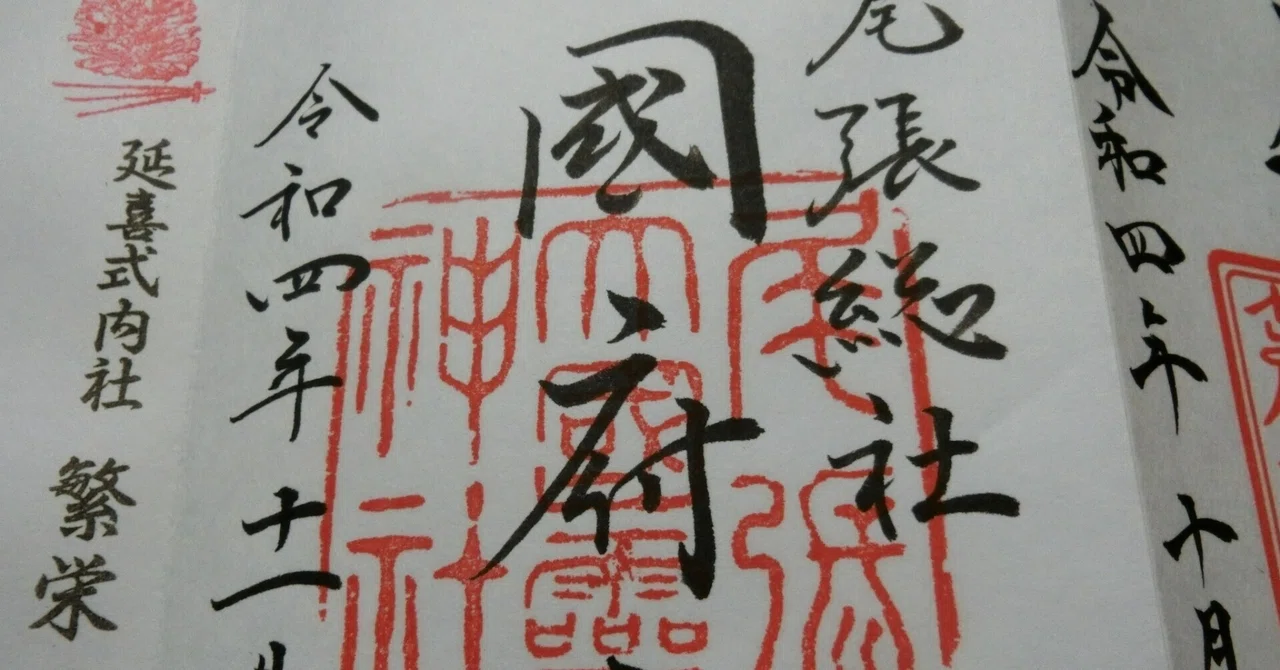 令和四年 十月
尾張総社
國府
令和四年十一
延喜式内社 繁栄
尾張
大國霊
神社